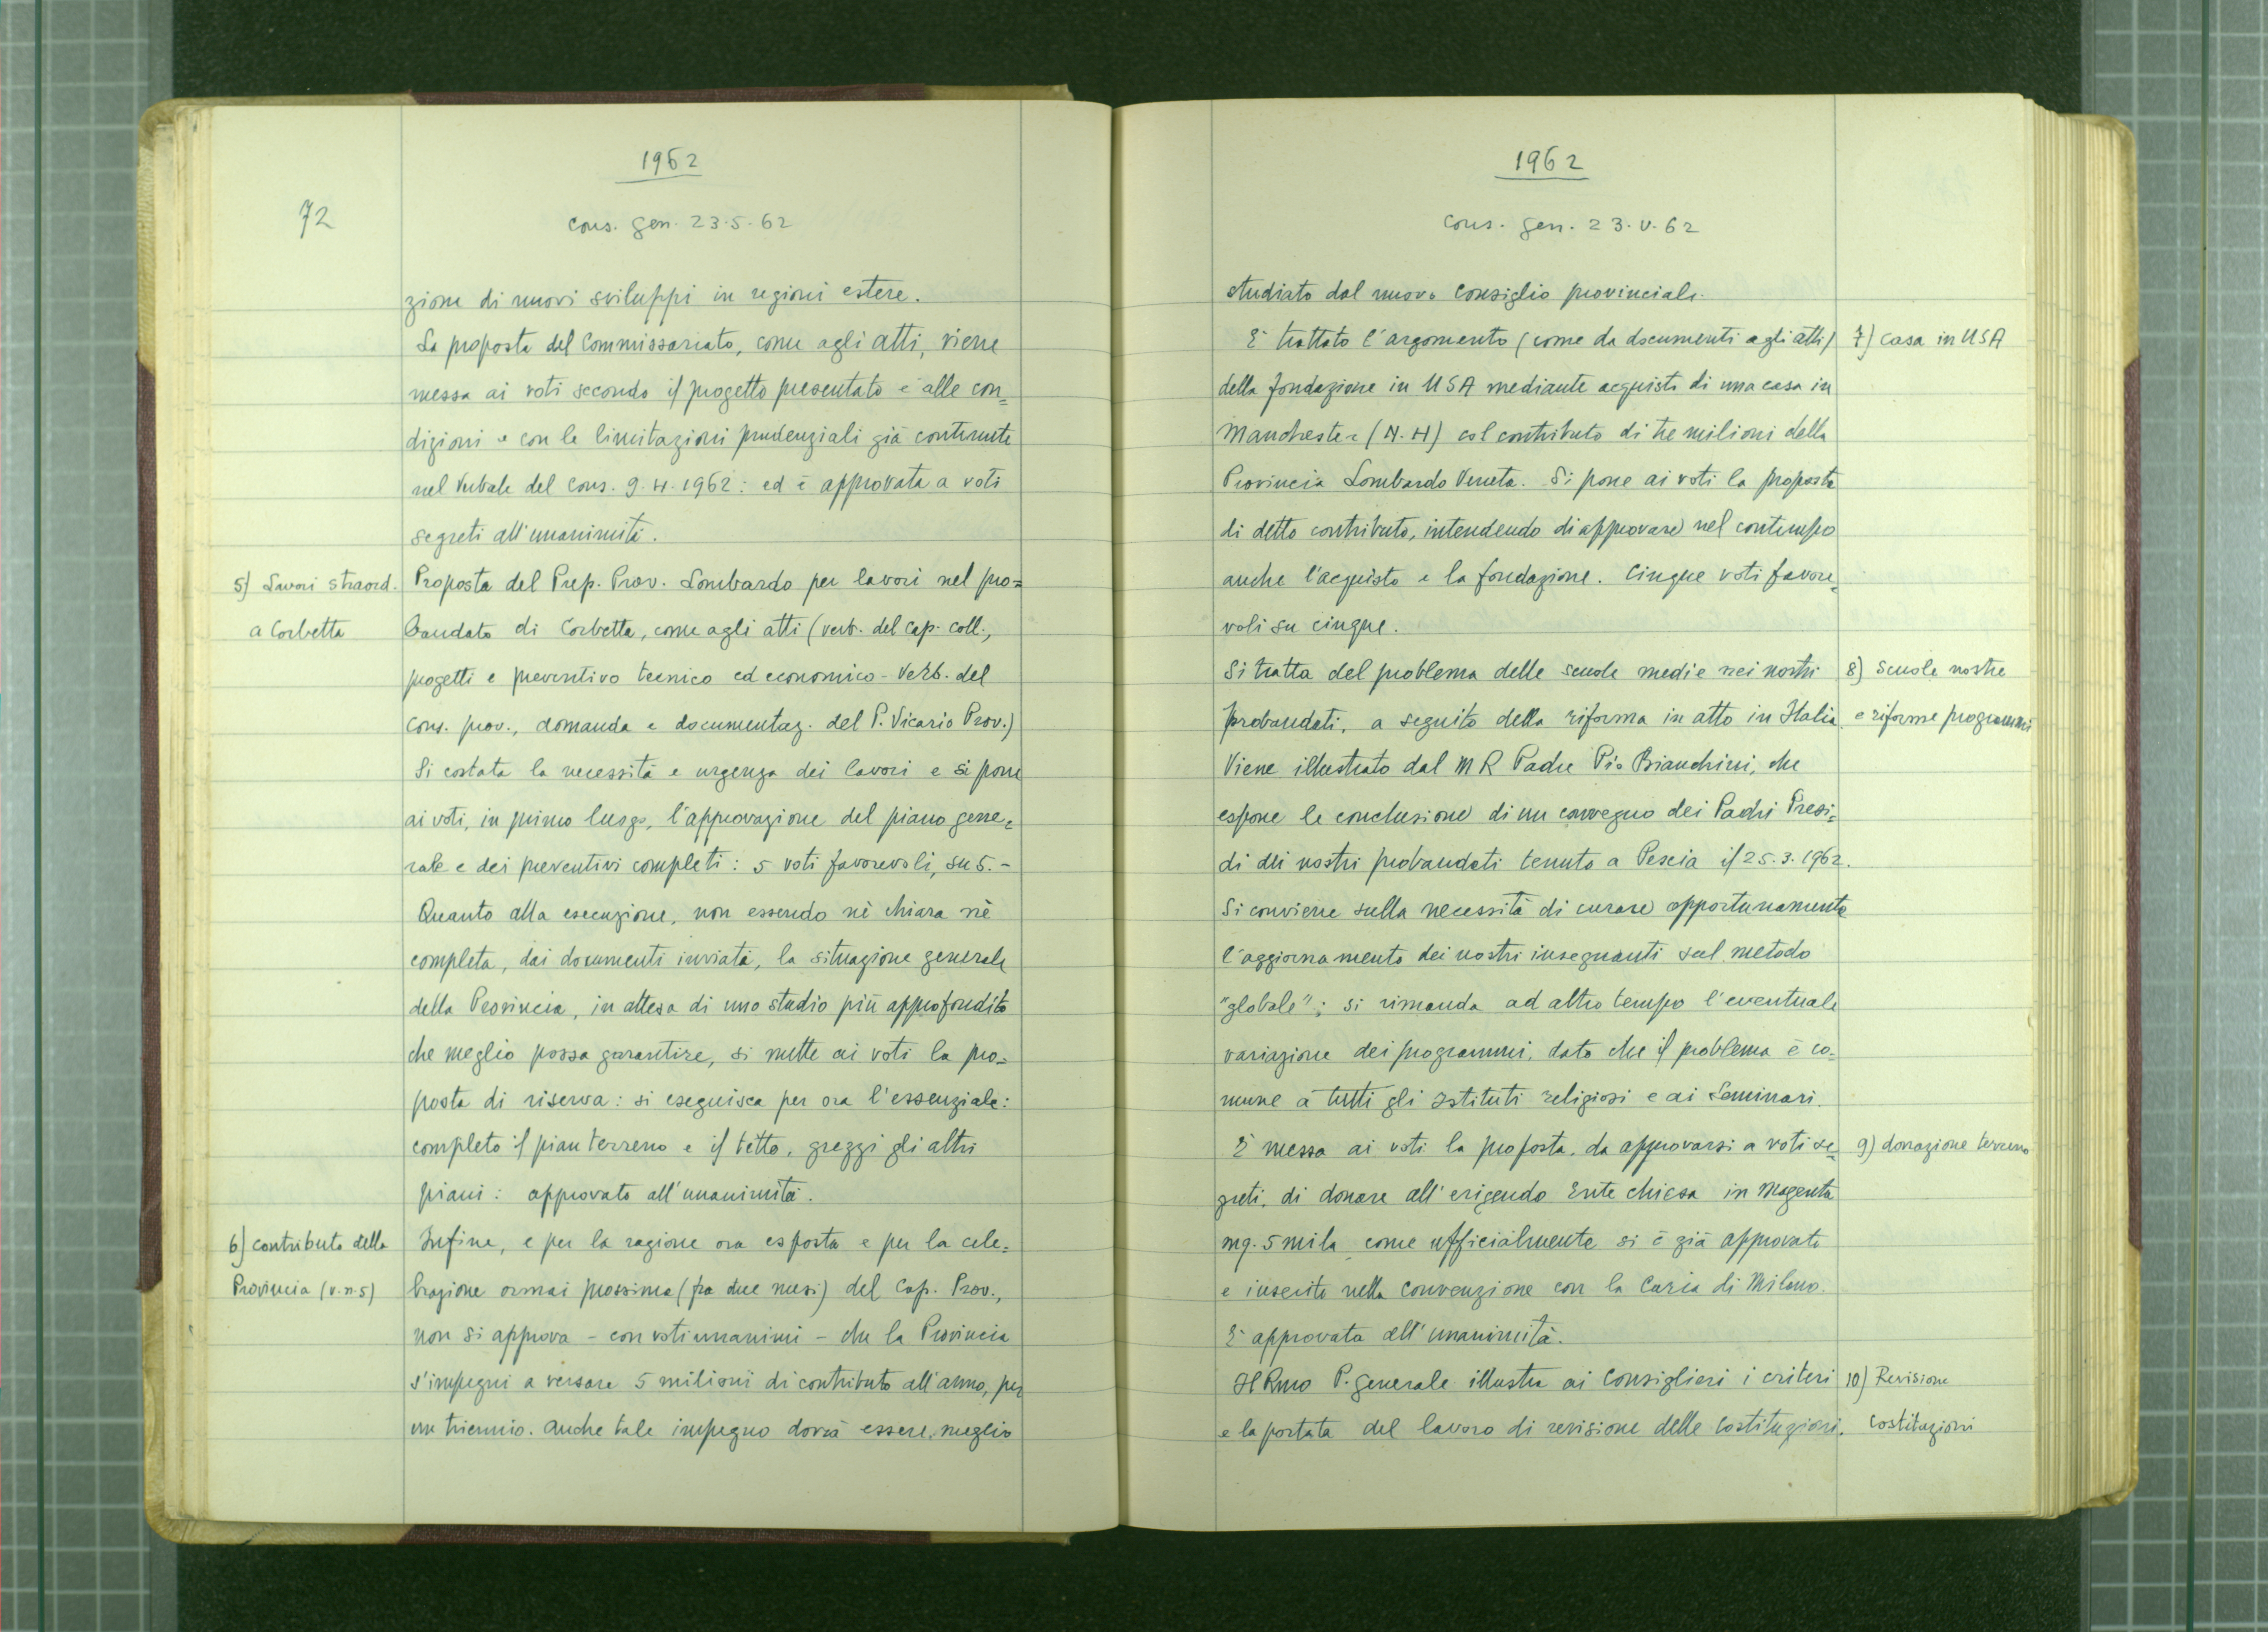 1962
72
cons. gen. 23.5.62
zione di nuovi sviluppi in regioni estere.
La proposta del Commissariato, come agli atti, viene
messa ai voti secondo il progetto presentato e alle con=
dizioni e con le limitazioni prudenziali già contenute
nel Verbale del Cons. 9.4.1962: ed è approvata a voti
segreti all'unanimità.
5) Lavori straord.
a Corbetta
Proposta del Prep. Prov. Lombardo per lavori nel pro=
bandato di Corbetta, come agli atti (verb. del cap. coll.,
progetti e preventivo tecnico ed economico - Verb. del
cons. prov., domanda e documentaz. del P. Vicario Prov.)
Si costata la necessità e urgenza dei lavori e si pone
ai voti, in primo luogo, l'approvazione del piano gene=
rale e dei preventivi completi: 5 voti favorevoli, su 5.-
Quanto alla esecuzione, non essendo nè chiara nè
completa, dai documenti inviati, la situazione generale
della Provincia, in attesa di uno studio più approfondito
che meglio possa garantire, si mette ai voti la pro=
posta di riserva: si eseguisca per ora l'essenziale:
completo il pian terreno e il tetto, grezzi gli altri
piani: approvato all'unanimità.
6) contributo della
Provincia (v.n.5)
Infine, e per la ragione ora esposta e per la cele=
brazione ormai prossima (fra due mesi) del Cap. Prov.,
non si approva - con voti unanimi - che la Provincia
s'impegni a versare 5 milioni di contributo all'anno, per
un triennio. Anche tale impegno dovrà essere meglio
1962
cons. gen. 23.V.62
studiato dal nuovo Consiglio provinciale.
È trattato l'argomento (come da documenti agli atti)
7) Casa in USA
della fondazione in USA mediante acquisto di una casa in
Manchester (N.H) col contributo di tre milioni della
Provincia Lombardo Veneta. Si pone ai voti la proposta
di detto contributo, intendendo di approvare nel contempo
anche l'acquisto e la fondazione. Cinque voti favore=
voli su cinque.
Si tratta del problema delle scuole medie nei nostri
8) Scuole nostre
probandati, a seguito della riforma in atto in Italia.
e riforme programmi
Viene illustrato dal M R Padre Pio Bianchini, che
espone le conclusione di un convegno dei Padri Presi=
di dei nostri probandati tenuto a Pescia il 25.3.1962.
Si conviene sulla necessità di curare opportunamente
l'aggiornamento dei nostri insegnanti sul metodo
"globale"; si rimanda ad altro tempo l'eventuale
variazione dei programmi, dato che il problema è co=
mune a tutti gli Istituti religiosi e ai Seminari.
È messa ai voti la proposta, da approvarsi a voti se=
9) donazione terreno
greti, di donare all'erigendo Ente chiesa in Magenta
mq. 5 mila come ufficialmente si è già approvato
e inserito nella Convenzione con la Curia di Milano.
È approvata all'unanimità.
Il Rmo P. Generale illustra ai Consiglieri i criteri
10) Revisione
e la portata del lavoro di revisione delle Costituzioni.
Costituzioni